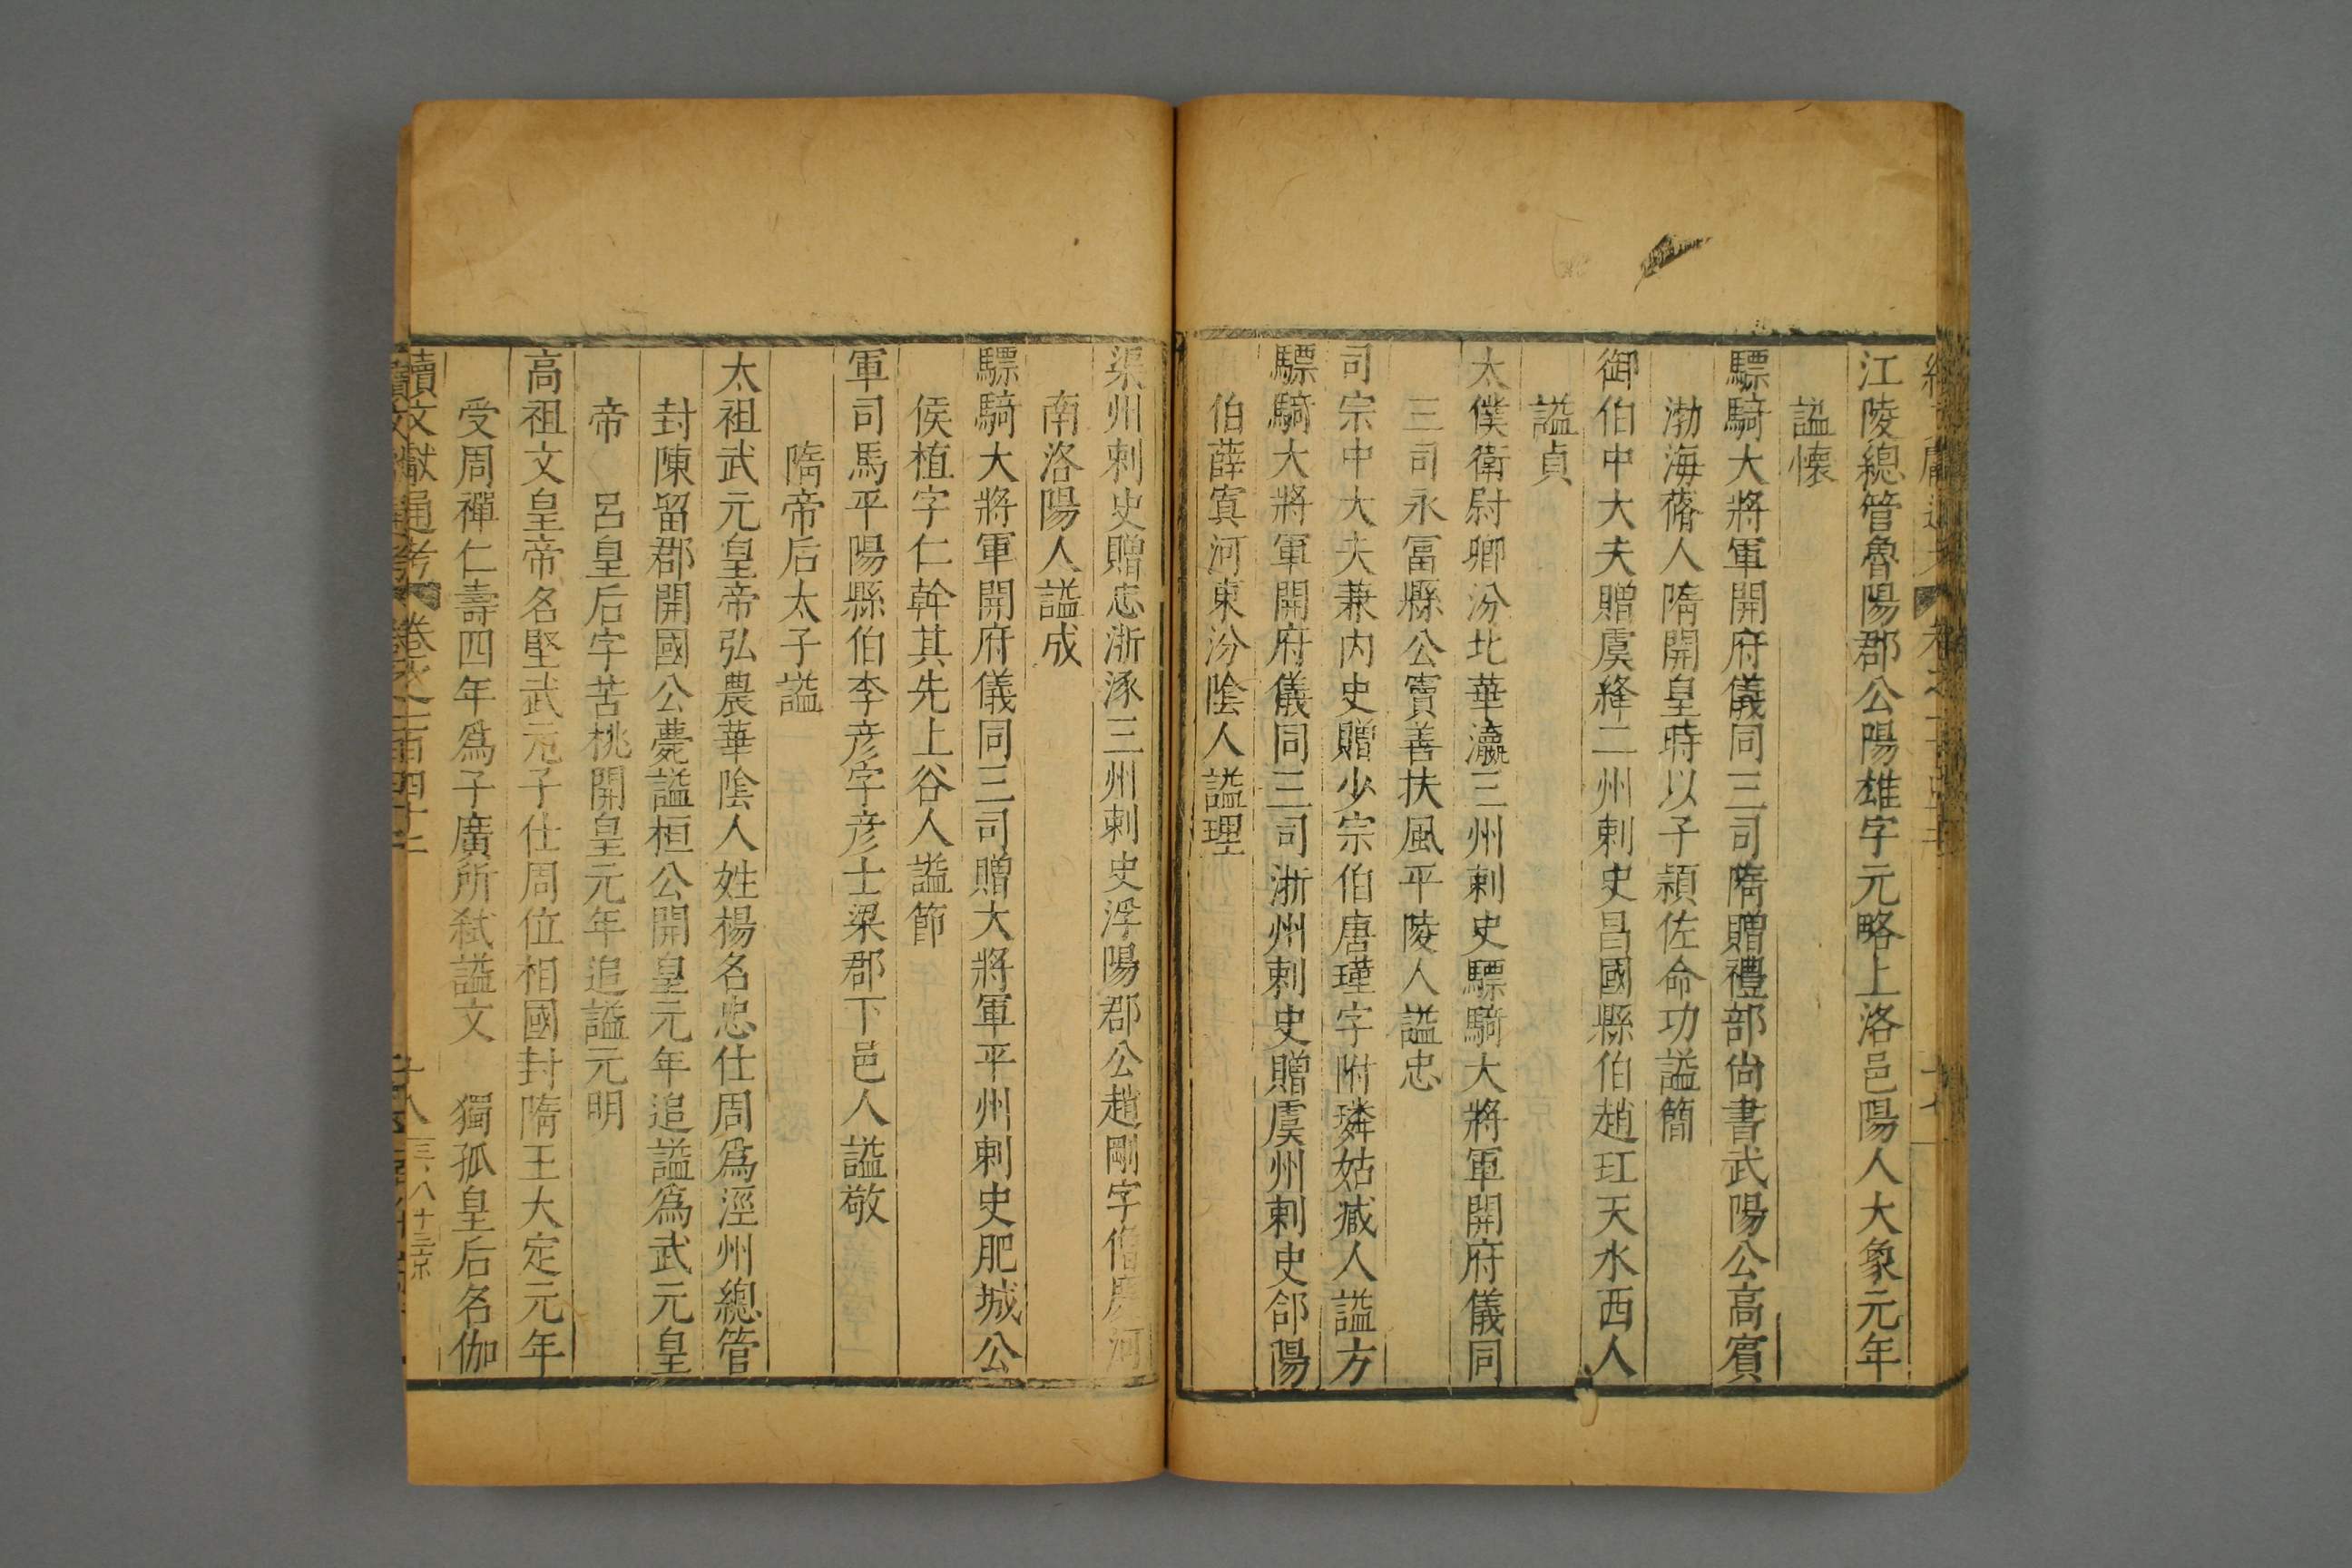 江陵總管魯陽郡公陽雄字元略上洛邑陽人大象元年
諡懷
驃騎大將軍開府儀同三司隋贈禮部尙書武陽公高賓
渤海蓨人隋開皇時以子熲佐命功諡簡
御伯中大夫贈虞絳二州刺史昌國縣伯趙㺬天水西人
諡貞
太僕衛尉卿汾北華瀛三州刺史驃騎大將軍開府儀同
三司永冨縣公竇善扶風平陵人諡忠
司宗中大夫兼内史贈少宗伯唐瑾字附璘姑臧人諡方
驃騎大將軍開府儀同三司浙州刺史贈虞州刺史郃陽
伯薛寘河東汾陰人諡理
渠州刺史贈忠浙涿三州刺史浮陽郡公趙剛字僧慶河
南洛陽人諡成
驃騎大將軍開府儀同三司贈大將軍平州刺史肥城公
侯植字仁幹其先上谷人諡節
軍司馬平陽縣伯李彦字彦士梁郡下邑人諡敬
隋帝后太子諡
太祖武元皇帝弘農華陰人姓楊名忠仕周爲涇州總管
封陳留郡開國公薨諡桓公開皇元年追諡爲武元皇
帝 呂皇后字苦桃開皇元年追諡元明
高祖文皇帝名堅武元子仕周位相國封隋王大定元年
受周禪仁壽四年爲子廣所弒諡文 獨孤皇后名伽
續文獻通考 卷之一百四十二 十八